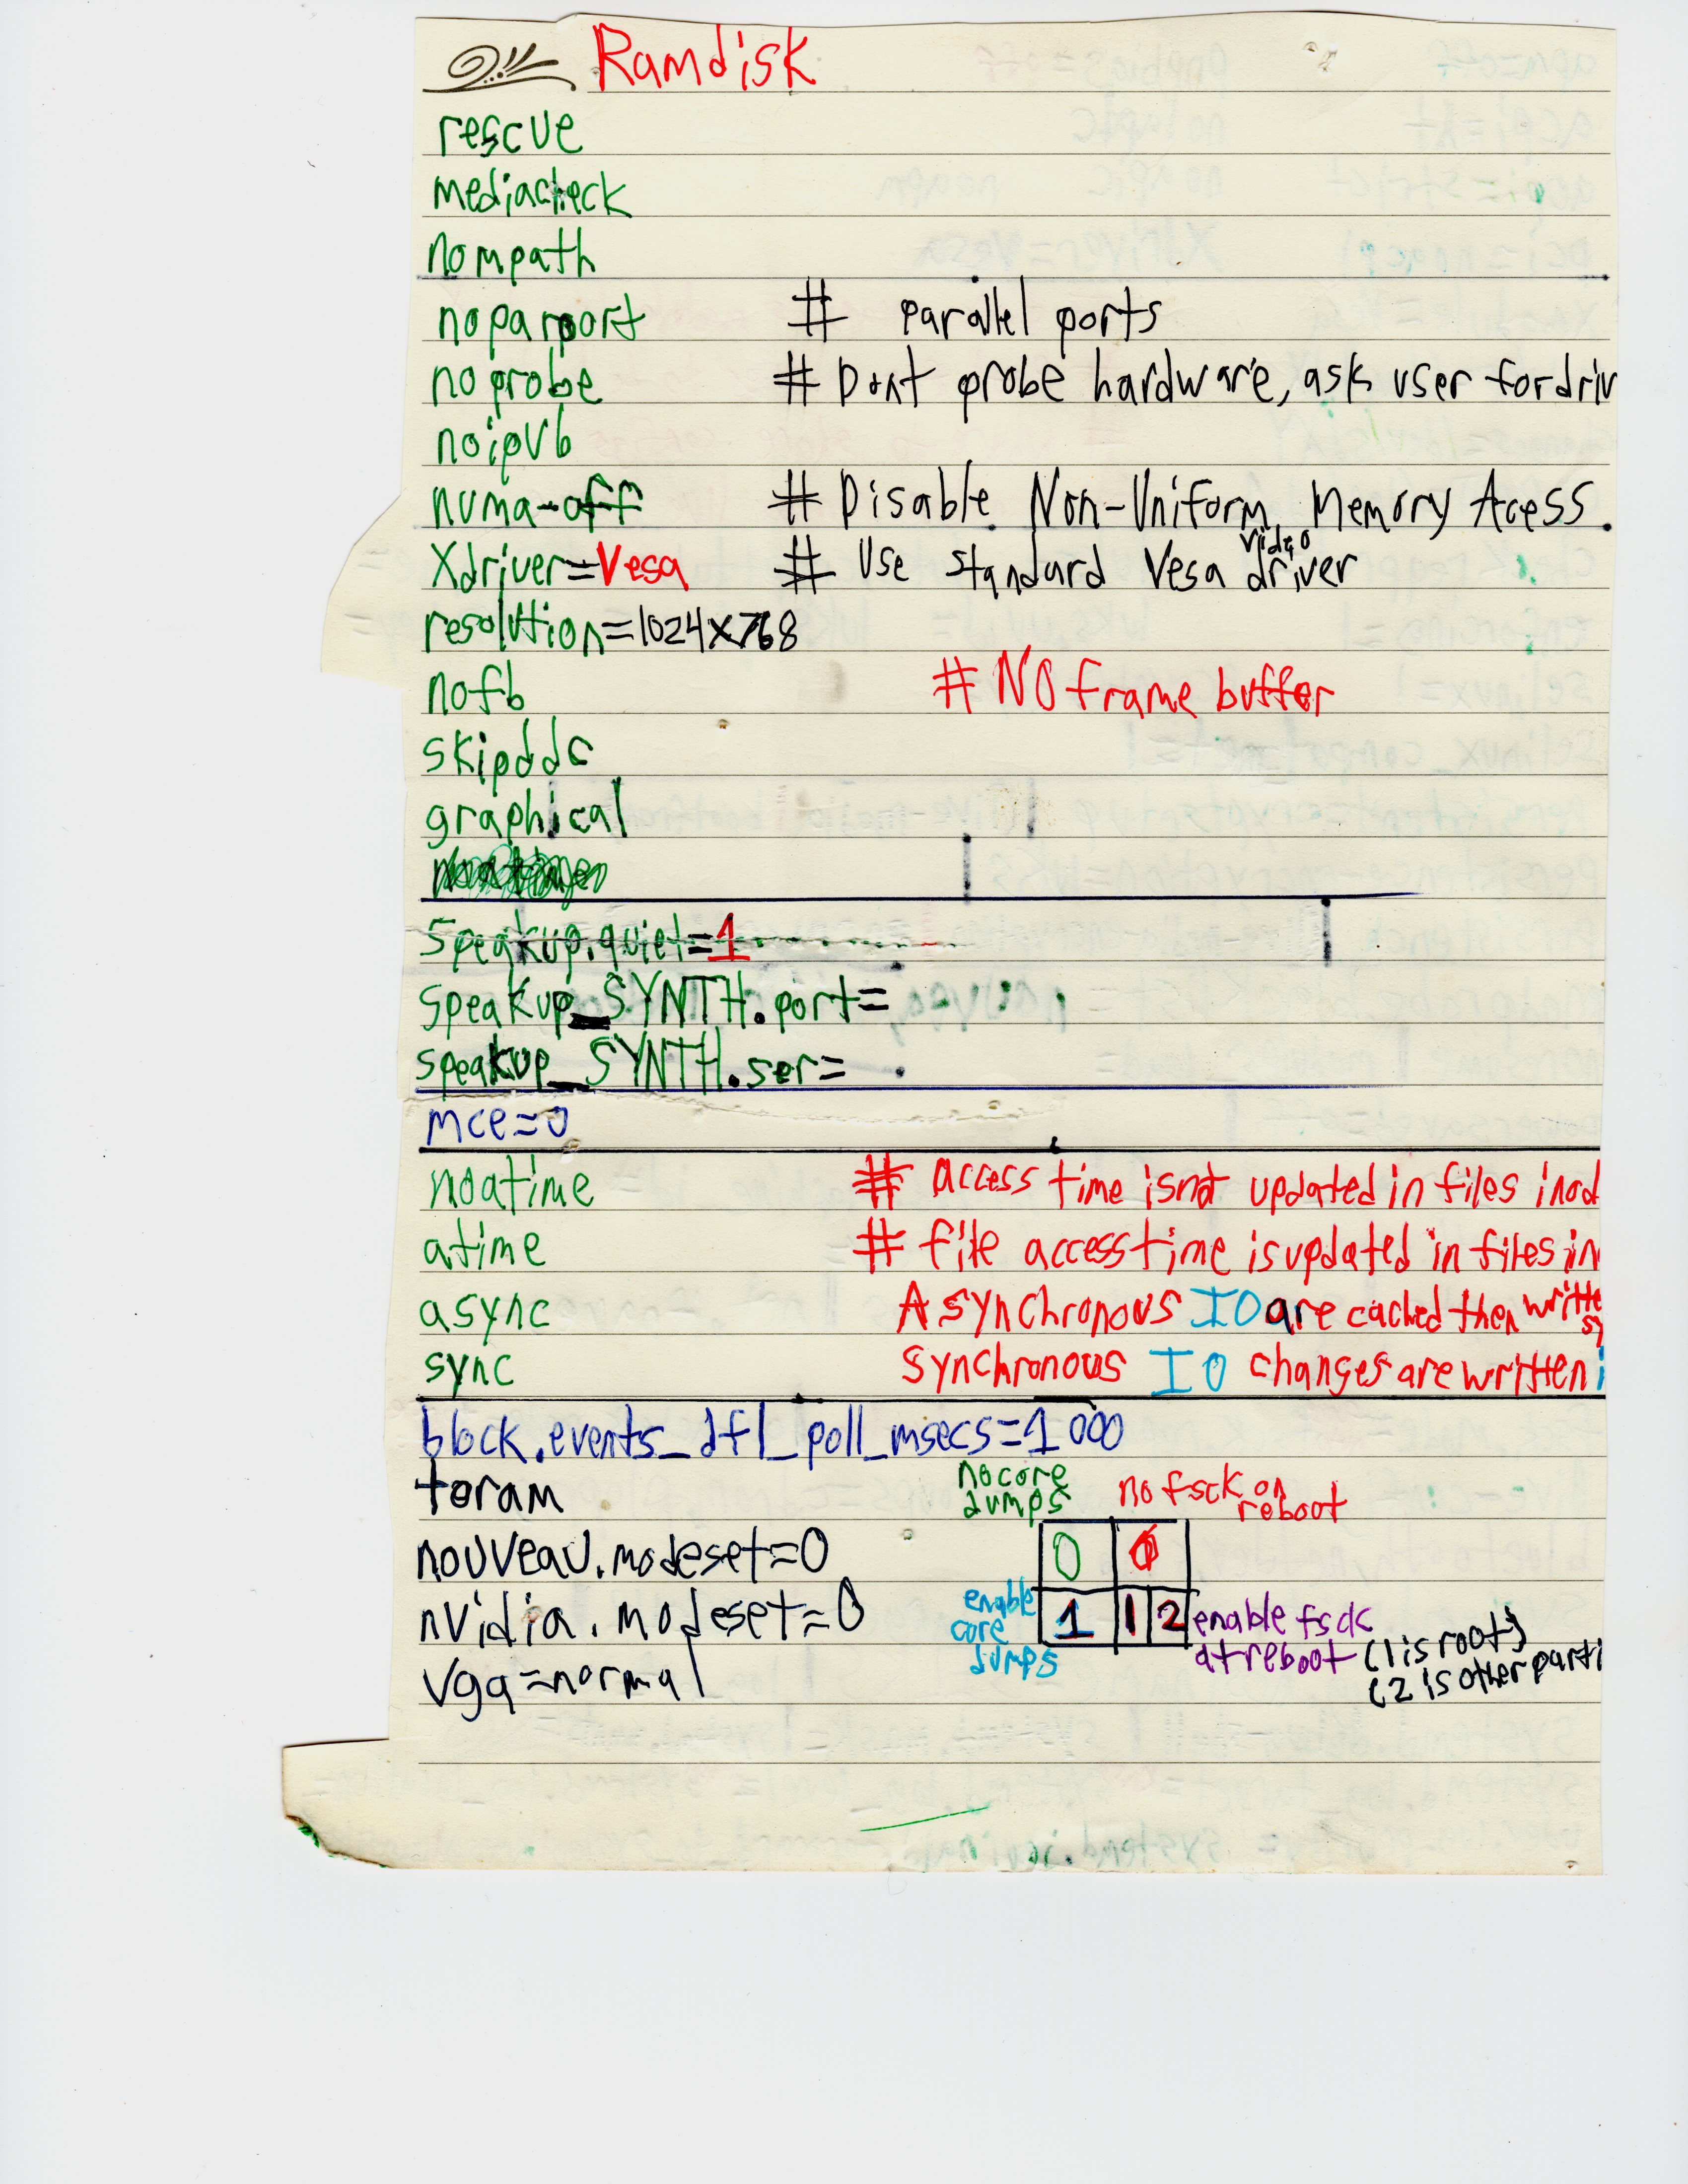 Ramdisk
rescue
mediacheck
nompath
noparport # parallel ports
noprobe # Dont probe hardware, ask user for driv
noipv6
numa-off # Disable Non-Uniform Memory Acess.
Xdriver=Vesa # Use standard Vesa video driver
resolution=1024x768
nofb # NO frame buffer
skipddc
graphical
speakup.quiet=1
speakup_SYNTH.port=
speakup_SYNTH.ser=
mce=0
noatime # access time isnt updated in files inod
atime # file access time is updated in files in
async Asynchronous IO are cached then writte
sync Synchronous IO changes are written i
block.events_dfl_poll_msecs=1000
toram
no core dumps
no fsck on reboot
nouveau.modeset=0
0 0
nvidia.modeset=0
enable core dumps
1 1 2
enable fsck at reboot (1 is root)
(2 is other parti
vga=normal